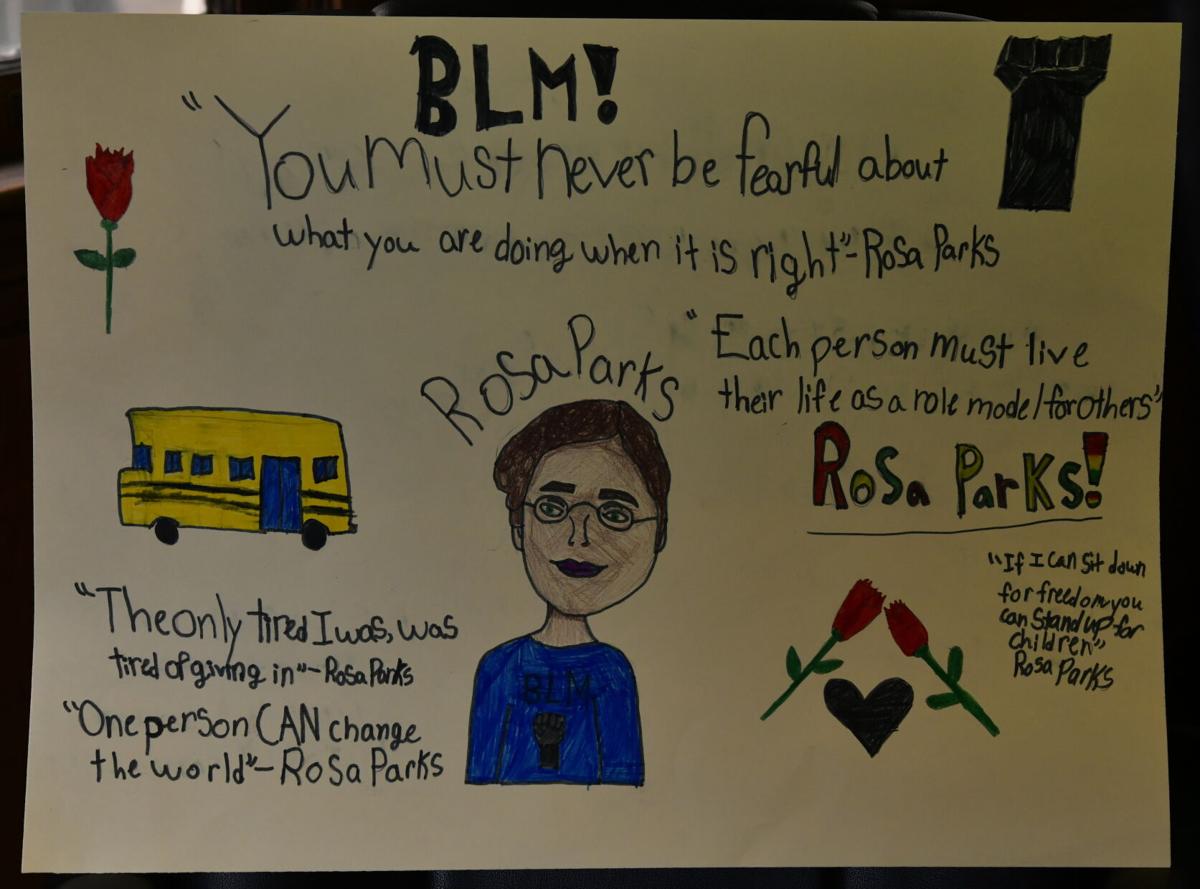 BLM!
"You Must never be fearful about
what you are doing when it is right"-Rosa Parks
Rosa Parks
"Each person must live
their life as a role model for others"
Rosa Parks!
"The only tired I was, was
tired of giving in"-Rosa Parks
"One person CAN change
the world"-Rosa Parks
BLM
"If I can sit down
for freedom you
can stand up for
children"
Rosa Parks